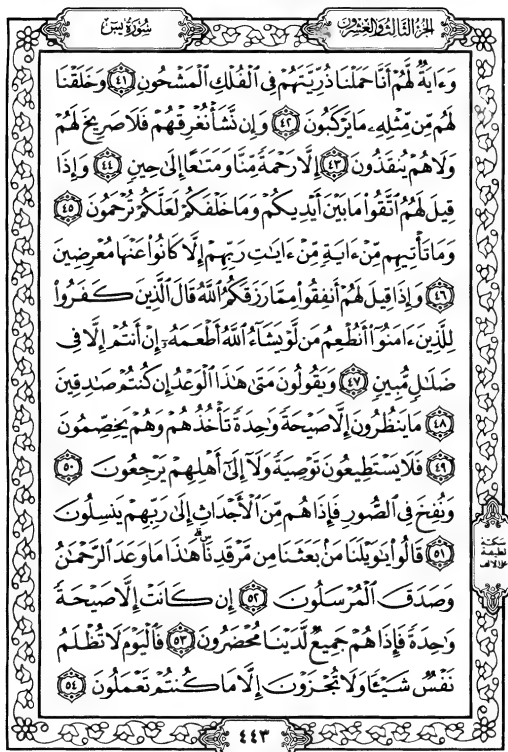 الجزء الثالث والعشرون
سورة يس
وَءَايَةٌ لَّهُمْ أَنَّا حَمَلْنَا ذُرِّيَّتَهُمْ فِي ٱلْفُلْكِ ٱلْمَشْحُونِ ٤١ وَخَلَقْنَا
لَهُم مِّن مِّثْلِهِۦ مَا يَرْكَبُونَ ٤٢ وَإِن نَّشَأْ نُغْرِقْهُمْ فَلَا صَرِيخَ لَهُمْ
وَلَا هُمْ يُنقَذُونَ ٤٣ إِلَّا رَحْمَةً مِّنَّا وَمَتَٰعًا إِلَىٰ حِينٍ ٤٤ وَإِذَا
قِيلَ لَهُمُ ٱتَّقُوا۟ مَا بَيْنَ أَيْدِيكُمْ وَمَا خَلْفَكُمْ لَعَلَّكُمْ تُرْحَمُونَ ٤٥
وَمَا تَأْتِيهِم مِّنْ ءَايَةٍ مِّنْ ءَايَٰتِ رَبِّهِمْ إِلَّا كَانُوا۟ عَنْهَا مُعْرِضِينَ
٤٦ وَإِذَا قِيلَ لَهُمْ أَنفِقُوا۟ مِمَّا رَزَقَكُمُ ٱللَّهُ قَالَ ٱلَّذِينَ كَفَرُوا۟
لِلَّذِينَ ءَامَنُوٓا۟ أَنُطْعِمُ مَن لَّوْ يَشَآءُ ٱللَّهُ أَطْعَمَهُۥٓ إِنْ أَنتُمْ إِلَّا فِي
ضَلَٰلٍ مُّبِينٍ ٤٧ وَيَقُولُونَ مَتَىٰ هَٰذَا ٱلْوَعْدُ إِن كُنتُمْ صَٰدِقِينَ
٤٨ مَا يَنظُرُونَ إِلَّا صَيْحَةً وَٰحِدَةً تَأْخُذُهُمْ وَهُمْ يَخِصِّمُونَ
٤٩ فَلَا يَسْتَطِيعُونَ تَوْصِيَةً وَلَآ إِلَىٰٓ أَهْلِهِمْ يَرْجِعُونَ ٥٠
وَنُفِخَ فِي ٱلصُّورِ فَإِذَا هُم مِّنَ ٱلْأَجْدَاثِ إِلَىٰ رَبِّهِمْ يَنسِلُونَ
٥١ قَالُوا۟ يَٰوَيْلَنَا مَنۢ بَعَثَنَا مِن مَّرْقَدِنَاۜ ۗ هَٰذَا مَا وَعَدَ ٱلرَّحْمَٰنُ
وَصَدَقَ ٱلْمُرْسَلُونَ ٥٢ إِن كَانَتْ إِلَّا صَيْحَةً
وَٰحِدَةً فَإِذَا هُمْ جَمِيعٌ لَّدَيْنَا مُحْضَرُونَ ٥٣ فَٱلْيَوْمَ لَا تُظْلَمُ
نَفْسٌ شَيْـًٔا وَلَا تُجْزَوْنَ إِلَّا مَا كُنتُمْ تَعْمَلُونَ ٥٤
سكتة
لطيفة
على الالف
٤٤٣